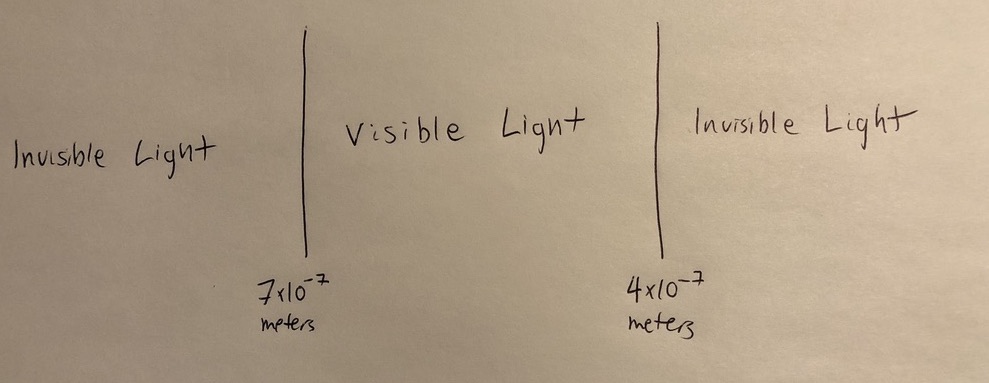 Invisible Light
Visible Light
Invisible Light
7x10⁻⁷
meters
4x10⁻⁷
meters